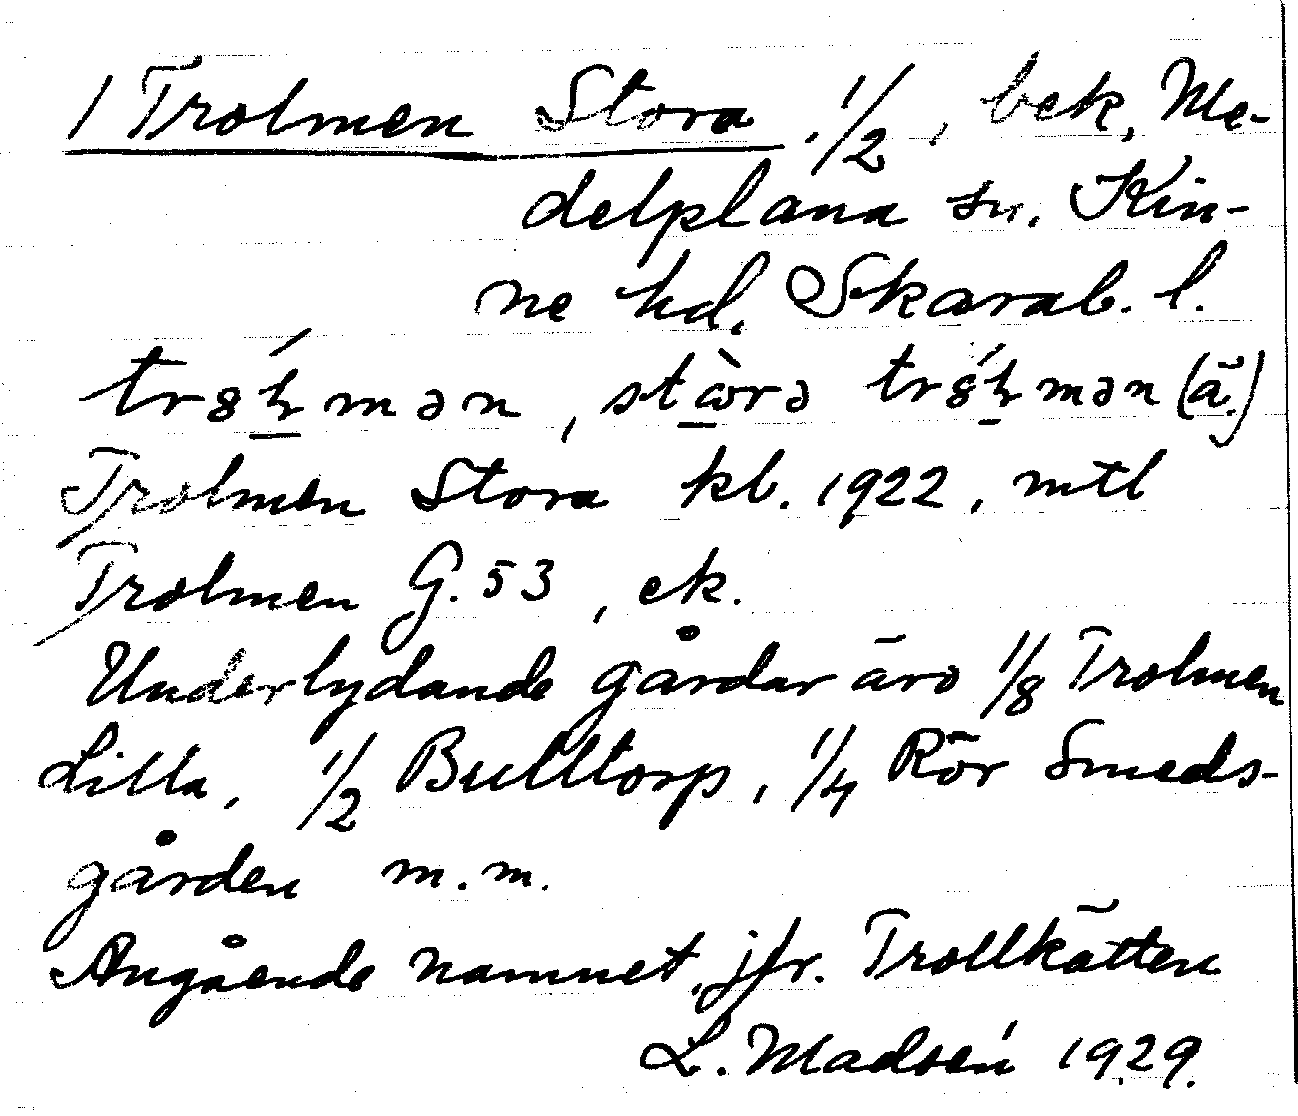 1 Trolmen Stora. 1/2, bek, Me-
delplana sn. Kin-
ne hd. Skarab. l.
Trolmen Stora kb. 1922, mtl
Trolmen G. 53, ek.
Underlydande gårdar äro 1/8 Trolmen
Lilla, 1/2 Bulltorp, 1/4 Rör Smeds-
gården m.m.
Angående namnet, jfr. Trollkätten
L. Madsén 1929.